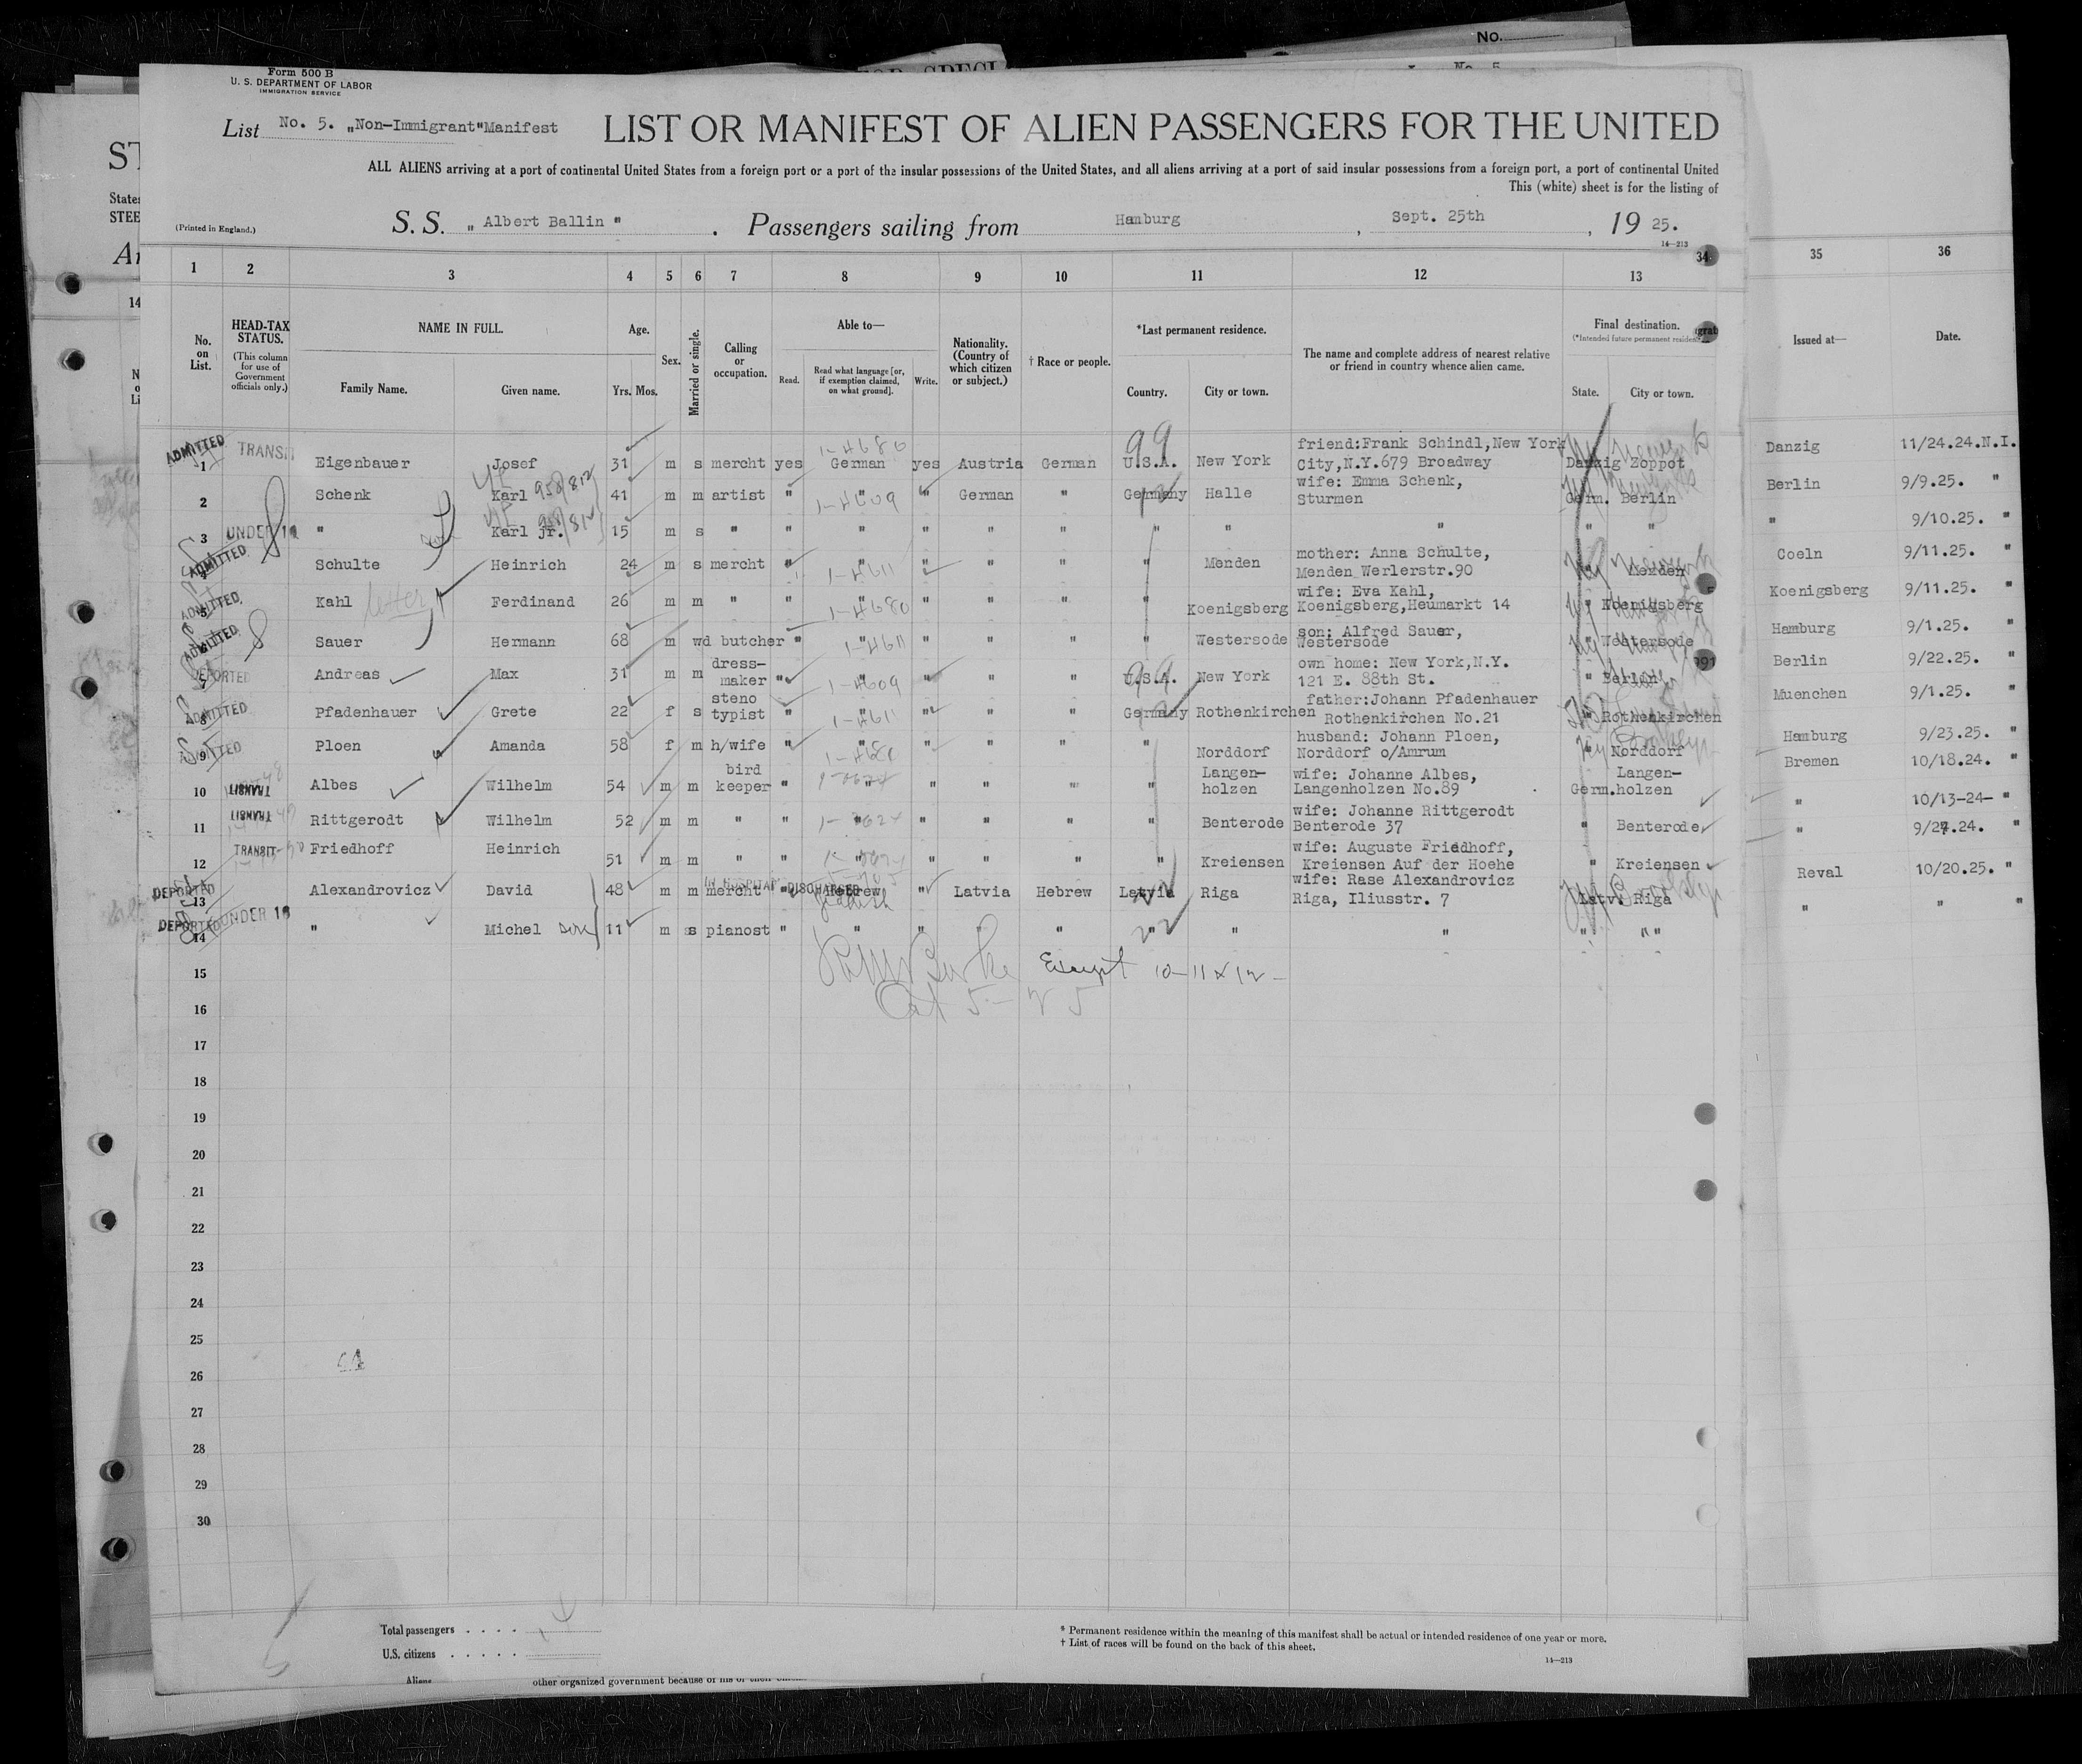 No.
Form 500 B
U. S. DEPARTMENT OF LABOR
IMMIGRATION SERVICE
List No. 5. „Non-Immigrant"Manifest
LIST OR MANIFEST OF ALIEN PASSENGERS FOR THE UNITED
ALL ALIENS arriving at a port of continental United States from a foreign port or a port of the insular possessions of the United States, and all aliens arriving at a port of said insular possessions from a foreign port, a port of continental United
This (white) sheet is for the listing of
(Printed in England.)
S. S. „ Albert Ballin " . Passengers sailing from Hamburg , Sept. 25th , 19 25.
14—213
1 2 3 4 5 6 7 8 9 10 11 12 13 34 35 36
No. on List.
HEAD-TAX STATUS.
(This column for use of Government officials only.)
NAME IN FULL.
Family Name. Given name.
Age.
Yrs. Mos.
Sex.
Married or single.
Calling or occupation.
Able to—
Read. Read what language [or, if exemption claimed, on what ground]. Write.
Nationality. (Country of which citizen or subject.)
† Race or people.
*Last permanent residence.
Country. City or town.
The name and complete address of nearest relative or friend in country whence alien came.
Final destination.
State. City or town.
Issued at— Date.
ADMITTED 1 TRANSIT Eigenbauer Josef 31 m s mercht yes German yes Austria German U.S.A. New York friend:Frank Schindl,New York City,N.Y.679 Broadway Danzig Zoppot Danzig 11/24.24.N.I.
2 Schenk Karl 41 m m artist " " " German " Germany Halle wife: Emma Schenk, Sturmen Germ. Berlin Berlin 9/9.25. "
3 UNDER 16 " Karl jr. 15 m s " " " " " " " " " " " " 9/10.25. "
ADMITTED 4 Schulte Heinrich 24 m s mercht " " " " " " Menden mother: Anna Schulte, Menden Werlerstr.90 " Menden Coeln 9/11.25. "
ADMITTED 5 Kahl letter Ferdinand 26 m m " " " " " " " Koenigsberg wife: Eva Kahl, Koenigsberg,Heumarkt 14 " Koenigsberg Koenigsberg 9/11.25. "
ADMITTED 6 Sauer Hermann 68 m wd butcher " " " " " " Westersode son: Alfred Sauer, Westersode " Westersode Hamburg 9/1.25. "
DEPORTED 7 Andreas Max 31 m m dress-maker " " " " " U.S.A. New York own home: New York,N.Y. 121 E. 88th St. " Berlin Berlin 9/22.25. "
ADMITTED 8 Pfadenhauer Grete 22 f s steno typist " " " " " Germany Rothenkirchen father:Johann Pfadenhauer Rothenkirchen No.21 " Rothenkirchen Muenchen 9/1.25. "
ADMITTED 9 Ploen Amanda 58 f m h/wife " " " " " " Norddorf husband: Johann Ploen, Norddorf o/Amrum " Norddorf Hamburg 9/23.25. "
10 TRANSIT Albes Wilhelm 54 m m bird keeper " " " " " " Langen-holzen wife: Johanne Albes, Langenholzen No.89 Germ. Langen-holzen Bremen 10/18.24. "
11 TRANSIT Rittgerodt Wilhelm 52 m m " " " " " " " Benterode wife: Johanne Rittgerodt Benterode 37 " Benterode " 10/13-24- "
12 TRANSIT Friedhoff Heinrich 51 m m " " " " " " " Kreiensen wife: Auguste Friedhoff, Kreiensen Auf der Hoehe " Kreiensen " 9/27.24. "
DEPORTED 13 Alexandrovicz David 48 m m mercht IN HOSPITAL DISCHARGED " Hebrew Jiddish " Latvia Hebrew Latvia Riga wife: Rase Alexandrovicz Riga, Iliusstr. 7 Latv. Riga Reval 10/20.25. "
DEPORTED 14 UNDER 16 " Michel son 11 m s pianost " " " " " " " " " " " " " "
15 Except 10-11 & 12 -
16 Oct 5- 25
17
18
19
20
21
22
23
24
25
26
27
28
29
30
Total passengers . . . .
U.S. citizens . . . . .
* Permanent residence within the meaning of this manifest shall be actual or intended residence of one year or more.
† List of races will be found on the back of this sheet.
14—213